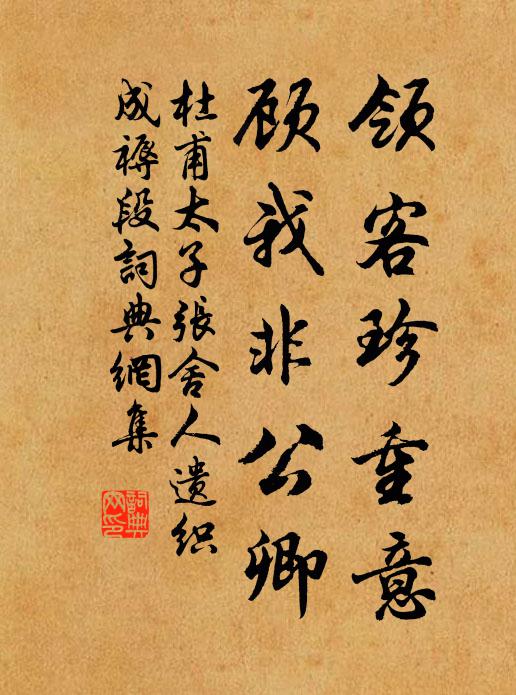 领客珍重意
顾我非公卿
杜甫太子張舍人遗织
成褥段詞典網集
詞典网印